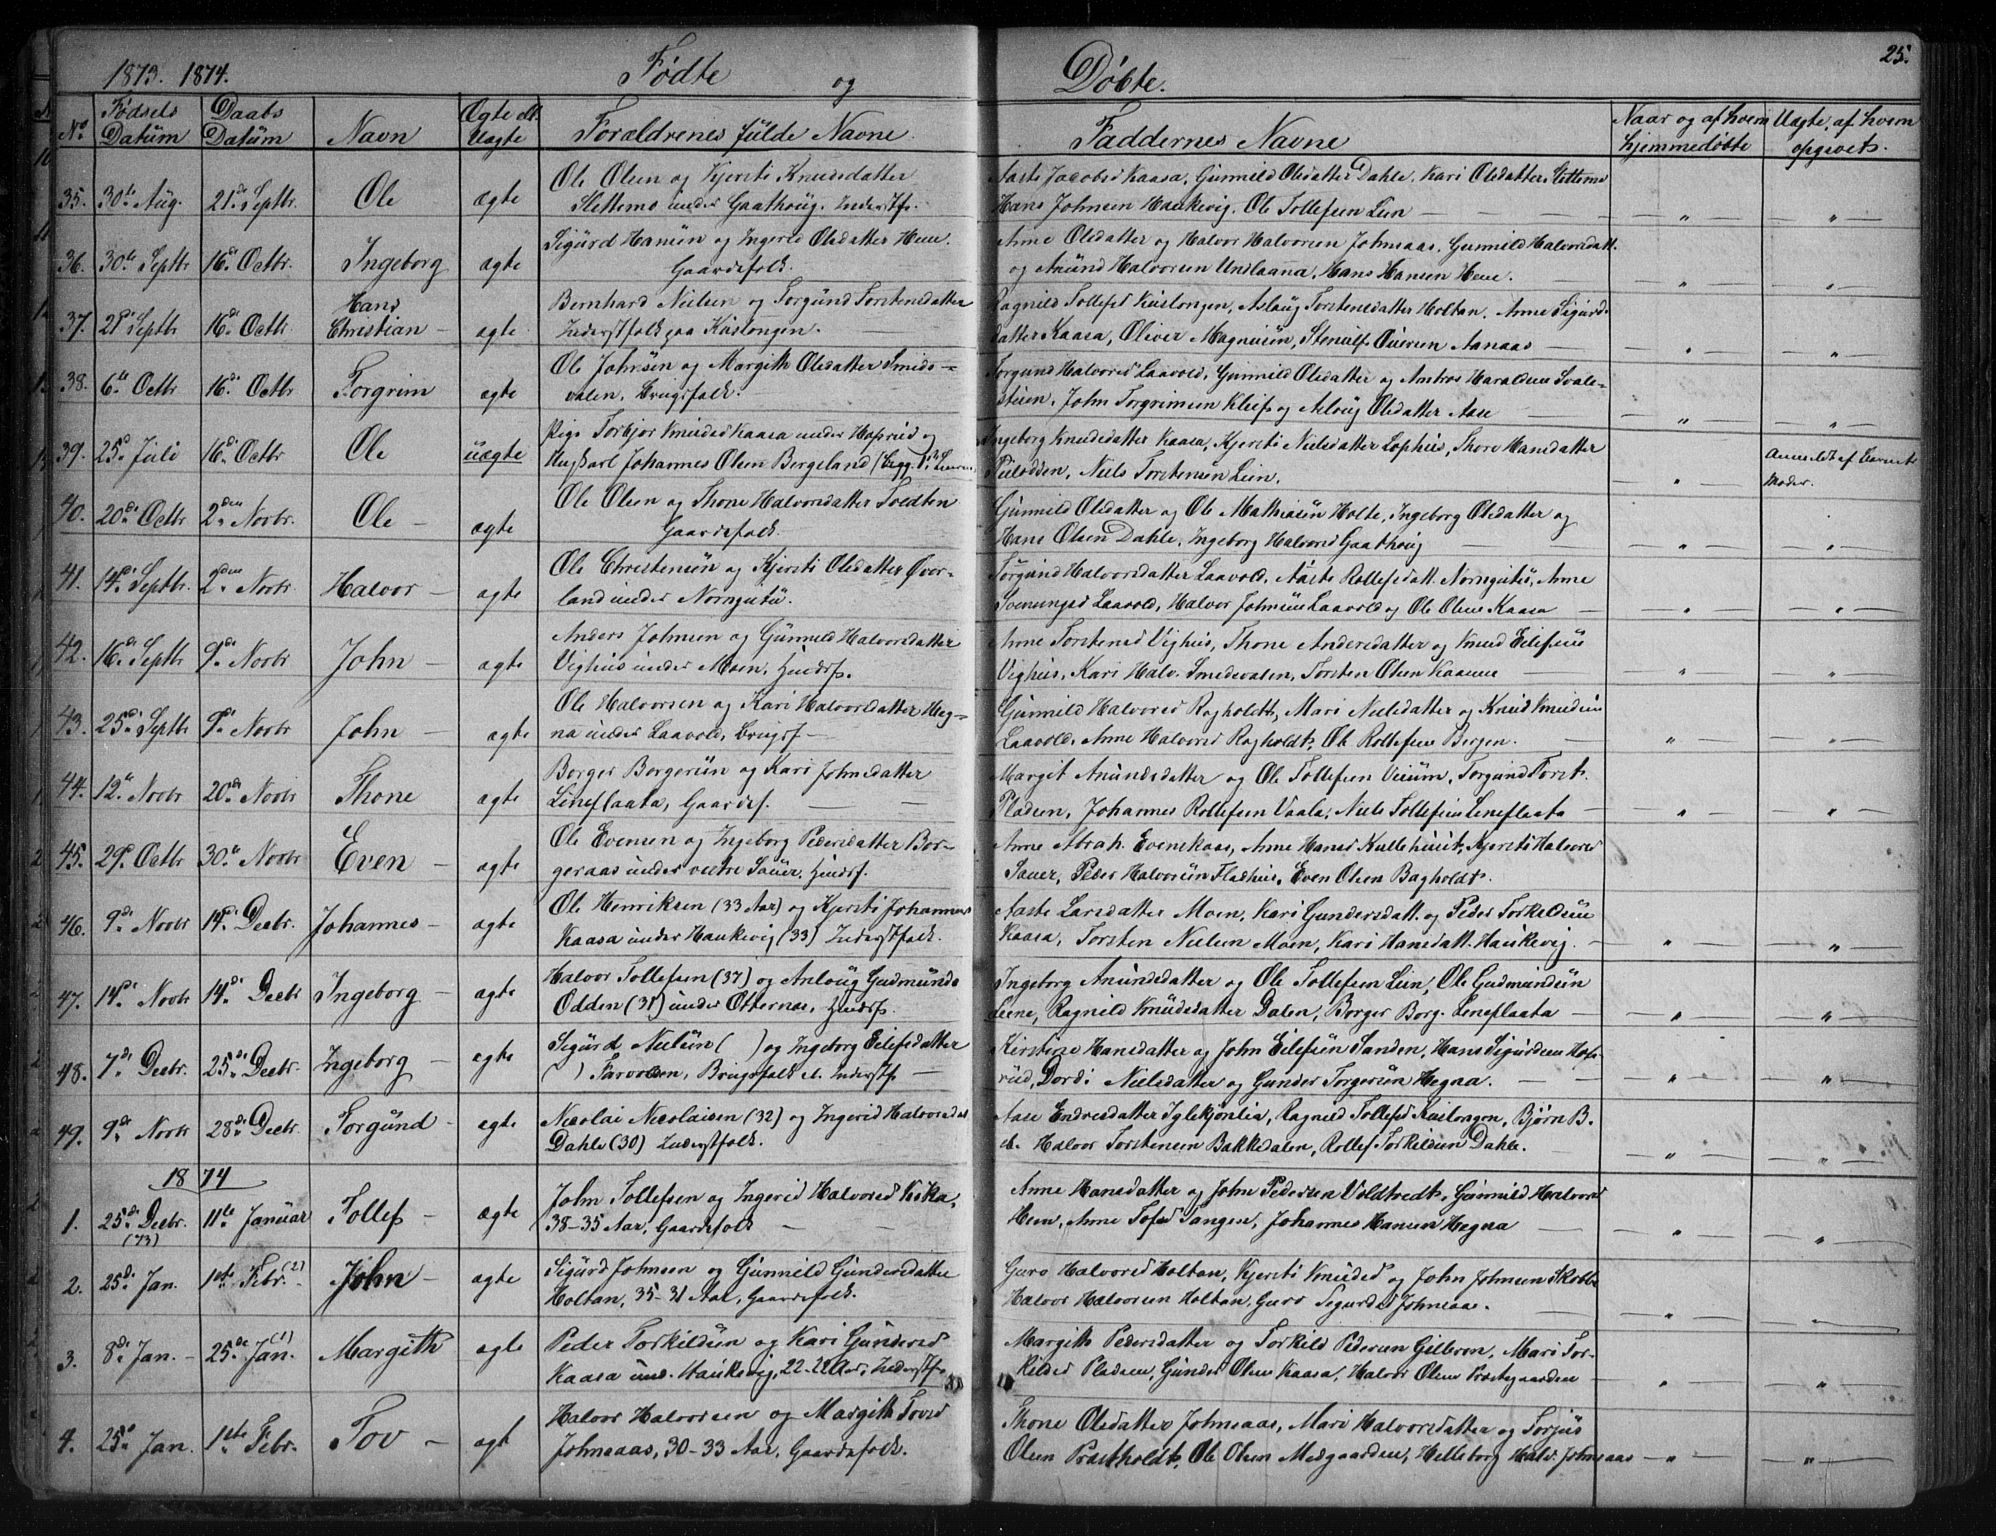 1873. 1874. Fødte og Døbte. 25.
No Fødsels Datum Daabs Datum Navn Ægte el. Uægte Forældrenes fulde Navne. Faddernes Navne Naar og af hvem hjemmedøbte Uægte, af hvem opgivets.
35. 30te Aug. 21de Septbr. Ole ægte Ole Olsen og Kjersti Knudsdatter Aaste Jacobsd Kaasa, Gunnild Olsdatter Dahle, Kari Olsdatter Slettemo
Slettemo under Gaathoug. Inderstf. Hans Johnsen Haukevig. Ole Tollefsen Lien — " — — " —
36. 30te Septbr 16de Octbr. Ingeborg ægte Sigurd Hansen og Ingerid Olsdatter Hem. Anne Olsdatter og Halvor Halvorsen Johnsaas, Gunnild Halvorsdatt.
Gaardsfolk. og Anund Halvorsen Undlanna, Hans Hansen Hem. — " — — " —
37. 21de Septbr 16de Octbr Hans Christian — ægte Bernhard Nielsen og Torgund Torstensdatter Ragnild Tollefsd Kaslongen, Aslaug Torstensdatter Holtan, Anne Sigurds-
Inderstfolk paa Kaslongen. datter Kaasa, Oliver Magnusen, Stenulf Aanaas — " — — " —
38. 6te Octbr 16de Octbr Torgrim ægte Ole Johnsen og Margith Olsdatter Smids- Torgund Halvorsd Laavold, Gunnild Olsdatter og Ambros Haraldsen Svale-
valen, Brugsfolk. — stuen, John Torgrimsen Kleif og Aslaug Olsdatter Aase — " — — " —
39. 25de Juli 16de Octbr Ole uægte Pige Torbjør Knudsd Kaasa under Hafsrud og Ingeborg Knudsdatter Kaasa, Kjersti Nielsdatter Lophus, Thore Hansdatter Anmeldt af Barnets
Ungkarl Johannes Olsen Bergeland Nils Torstensen Lien. — " — Moder.
40. 20de Octbr 2den Novbr. Ole — ægte Ole Olsen og Thone Halvorsdatter Tvedten Gunnild Olsdatter og Ole Mathiasen Holte, Ingeborg Olsdatter og
Gaardsfolk Hans Olsen Dahle, Ingeborg Halvorsd Gaathoug — " — — " —
41. 14de Septbr. 2den Novbr. Halvor — ægte Ole Christensen og Kjersti Olsdatter Øver- Torgund Halvorsdatter Laavold, Aaste Rollefsdatt. Nornguta, Anne
land under Nornguta. Sveinungsd Laavold, Halvor Johnsen Laavold og Ole Olsen Kaasa — " — — " —
42. 16de Septbr 9de Novbr John — ægte Anders Johnsen og Gunnild Halvorsdatter Anne Torstensd Vighus, Thone Andersdatter og Knud Eilefsen
Vighus under Moen, Huusf. Vighus, Kari Halv. Smedsvalen, Torsten Olsen Kaasene — " — — " —
43. 25de Septbr 9de Novbr John — ægte Ole Halvorsen og Kari Halvorsdatter Heg- Gunnild Halvorsd Ragholdt, Mari Nielsdatter og Knud Knudsen
na under Laavold, Brugsf — Laavold, Anne Halvorsd Ragholdt, Ole Rollefsen Bergen. — " — — " —
44. 12te Novbr 20de Novbr Thone ægte Borger Borgersen og Kari Johnsdatter Margit Anundsdatter og Ole Tollefsen Torgund Torst.
Lineflaata, Gaardsf. — Pladsen, Johannes Rollefsen Vaala, Niels Tollefsen Lineflaata — " — — " —
45. 29de Octbr 30te Novbr Even — ægte Ole Evensen og Ingeborg Pedersdatter Bor- Anne Abrah. Evenskaas, Anne Hansd Kullehuset, Kjersti Halvorsd
geraas under vestre Sauer. Huusf. Sauer, Peder Halvorsen Fladhus, Even Olsen Bagholdt. — " —
46. 9de Novbr 14de Decbr. Johannes — ægte Ole Henriksen (33 Aar) og Kjersti Johannesd Aaste Larsdatter Moen, Kari Gundersdatt. og Peder Torkeldsen
Kaasa under Haukevig (33) Inderstfolk. Kaasa, Torsten Nielsen Moen, Kari Hansdatt. Haukevig. — " — — " —
47. 14de Novbr 14de Decbr Ingeborg — ægte Halvor Tollefsen (37) og Anlaug Gudmundsd Ingeborg Anundsdatter og Ole Tollefsen Lien, Ole Gudmundsen
Odden (31) under Otternes, Huusf. Lene, Ragnild Knudsdatter Dalen, Borger Borg. Lineflaata — " — — " —
48. 7de Decbr. 25de Decbr. Ingeborg — ægte Sigurd Nielsen ( ) og Ingeborg Eilefsdatter Kirstine Hansdatter og John Eilefsen Sanden, Hans Sigurdsen Hafs-
( ) Brugsfolk el. Inderstf. — rud, Dordi Nielsdatter og Gunder Torgersen Hegna. — " — — " —
49. 9de Novbr 28de Decbr. Torgund — ægte Nicolai Nicolaisen (32) og Ingerid Halvorsdat Aase Endresdatter Iglekjønlia, Ragnild Tollefsd Kaslongen, Bjørn B.
Dahle (30) Inderstfolk. Halvor Torstensen Bakkedalen, Rollef Torkildsen Dahle. — " — — " —
1874
1. 25de Decbr. (73) 11te Januar Tollef — ægte John Tollefsen og Ingerid Halvorsd Kaasa, Anne Hansdatter og John Pedersen Voldtvedt, Gunnild Halvorsd
38-35 Aar, Gaardsfolk — Hem, Anne Tofsd Tangen, Johannes Hansen Hegna — " — — " —
2. 25de Jan. 1ste Febr. (2) John — ægte Sigurd Johnsen og Gunnild Gundersdatter Guro Halvorsd Holtan, Kjersti Knudsd og John Johnsen Skobba
Holtan, 35-31 Aar, Gaardsfolk. Halvor Halvorsen Holtan, Guro Sigurdsd Johnsaas. — " — — " —
3. 8de Jan. — 25de Jan. (1) Margith ægte Peder Torkildsen og Kari Gundersd Margith Pedersdatter og Torkild Pedersen Gilbron, Mari Tor-
Kaasa und. Haukevig, 22-22 Aar, Inderstf. kildsd Pladsen, Gunder Olsen Kaasa, Halvor Olsen Præstegaarden — " — — " —
4. 25de Jan. 1ste Febr. Tov — ægt Halvor Halvorsen og Margith Tovsd Thone Olsdatter Johnsaas, Mari Halvorsdatter og Torjus
Johnsaas, 30-33 Aar, Gaardsfolk. Olsen Præstholdt, Ole Olsen Midgaarden, Helleborg Halv. Johnsaas — " — — " —